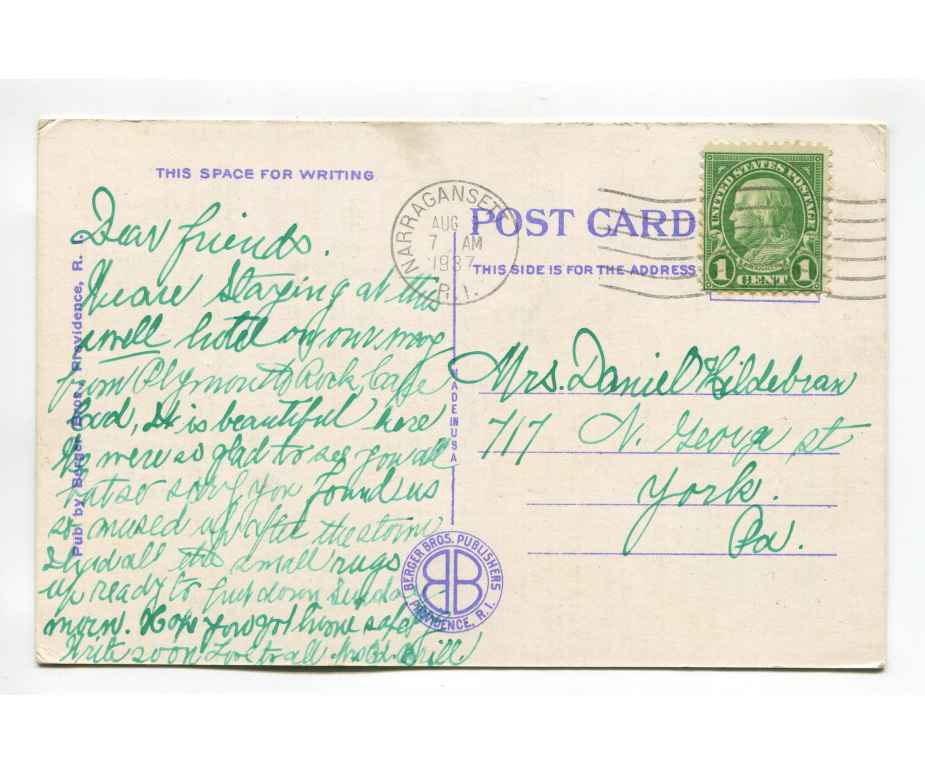 THIS SPACE FOR WRITING
Dear friends.
We are staying at this
swell hotel on our way
from Plymouth Rock Cape
Cod, It is beautiful here
We were so glad to see you all
but so sorry you found us
so mused up after the storm
I had all the small rugs
up ready to put down Sunda
morn. Hope you got home safely
Write soon Love to all. Mrs Ed.
Publ by Berger Bros., Providence, R. I.
NARRAGANSETT
AUG
7 AM
1937
R.I.
POST CARD
THIS SIDE IS FOR THE ADDRESS
UNITED STATES POSTAGE
FRANKLIN
1 CENT 1
MADE IN USA
Mrs. Daniel Hildebran
717 N. George st
York.
Pa.
BERGER BROS. PUBLISHERS
BB
PROVIDENCE, R. I.